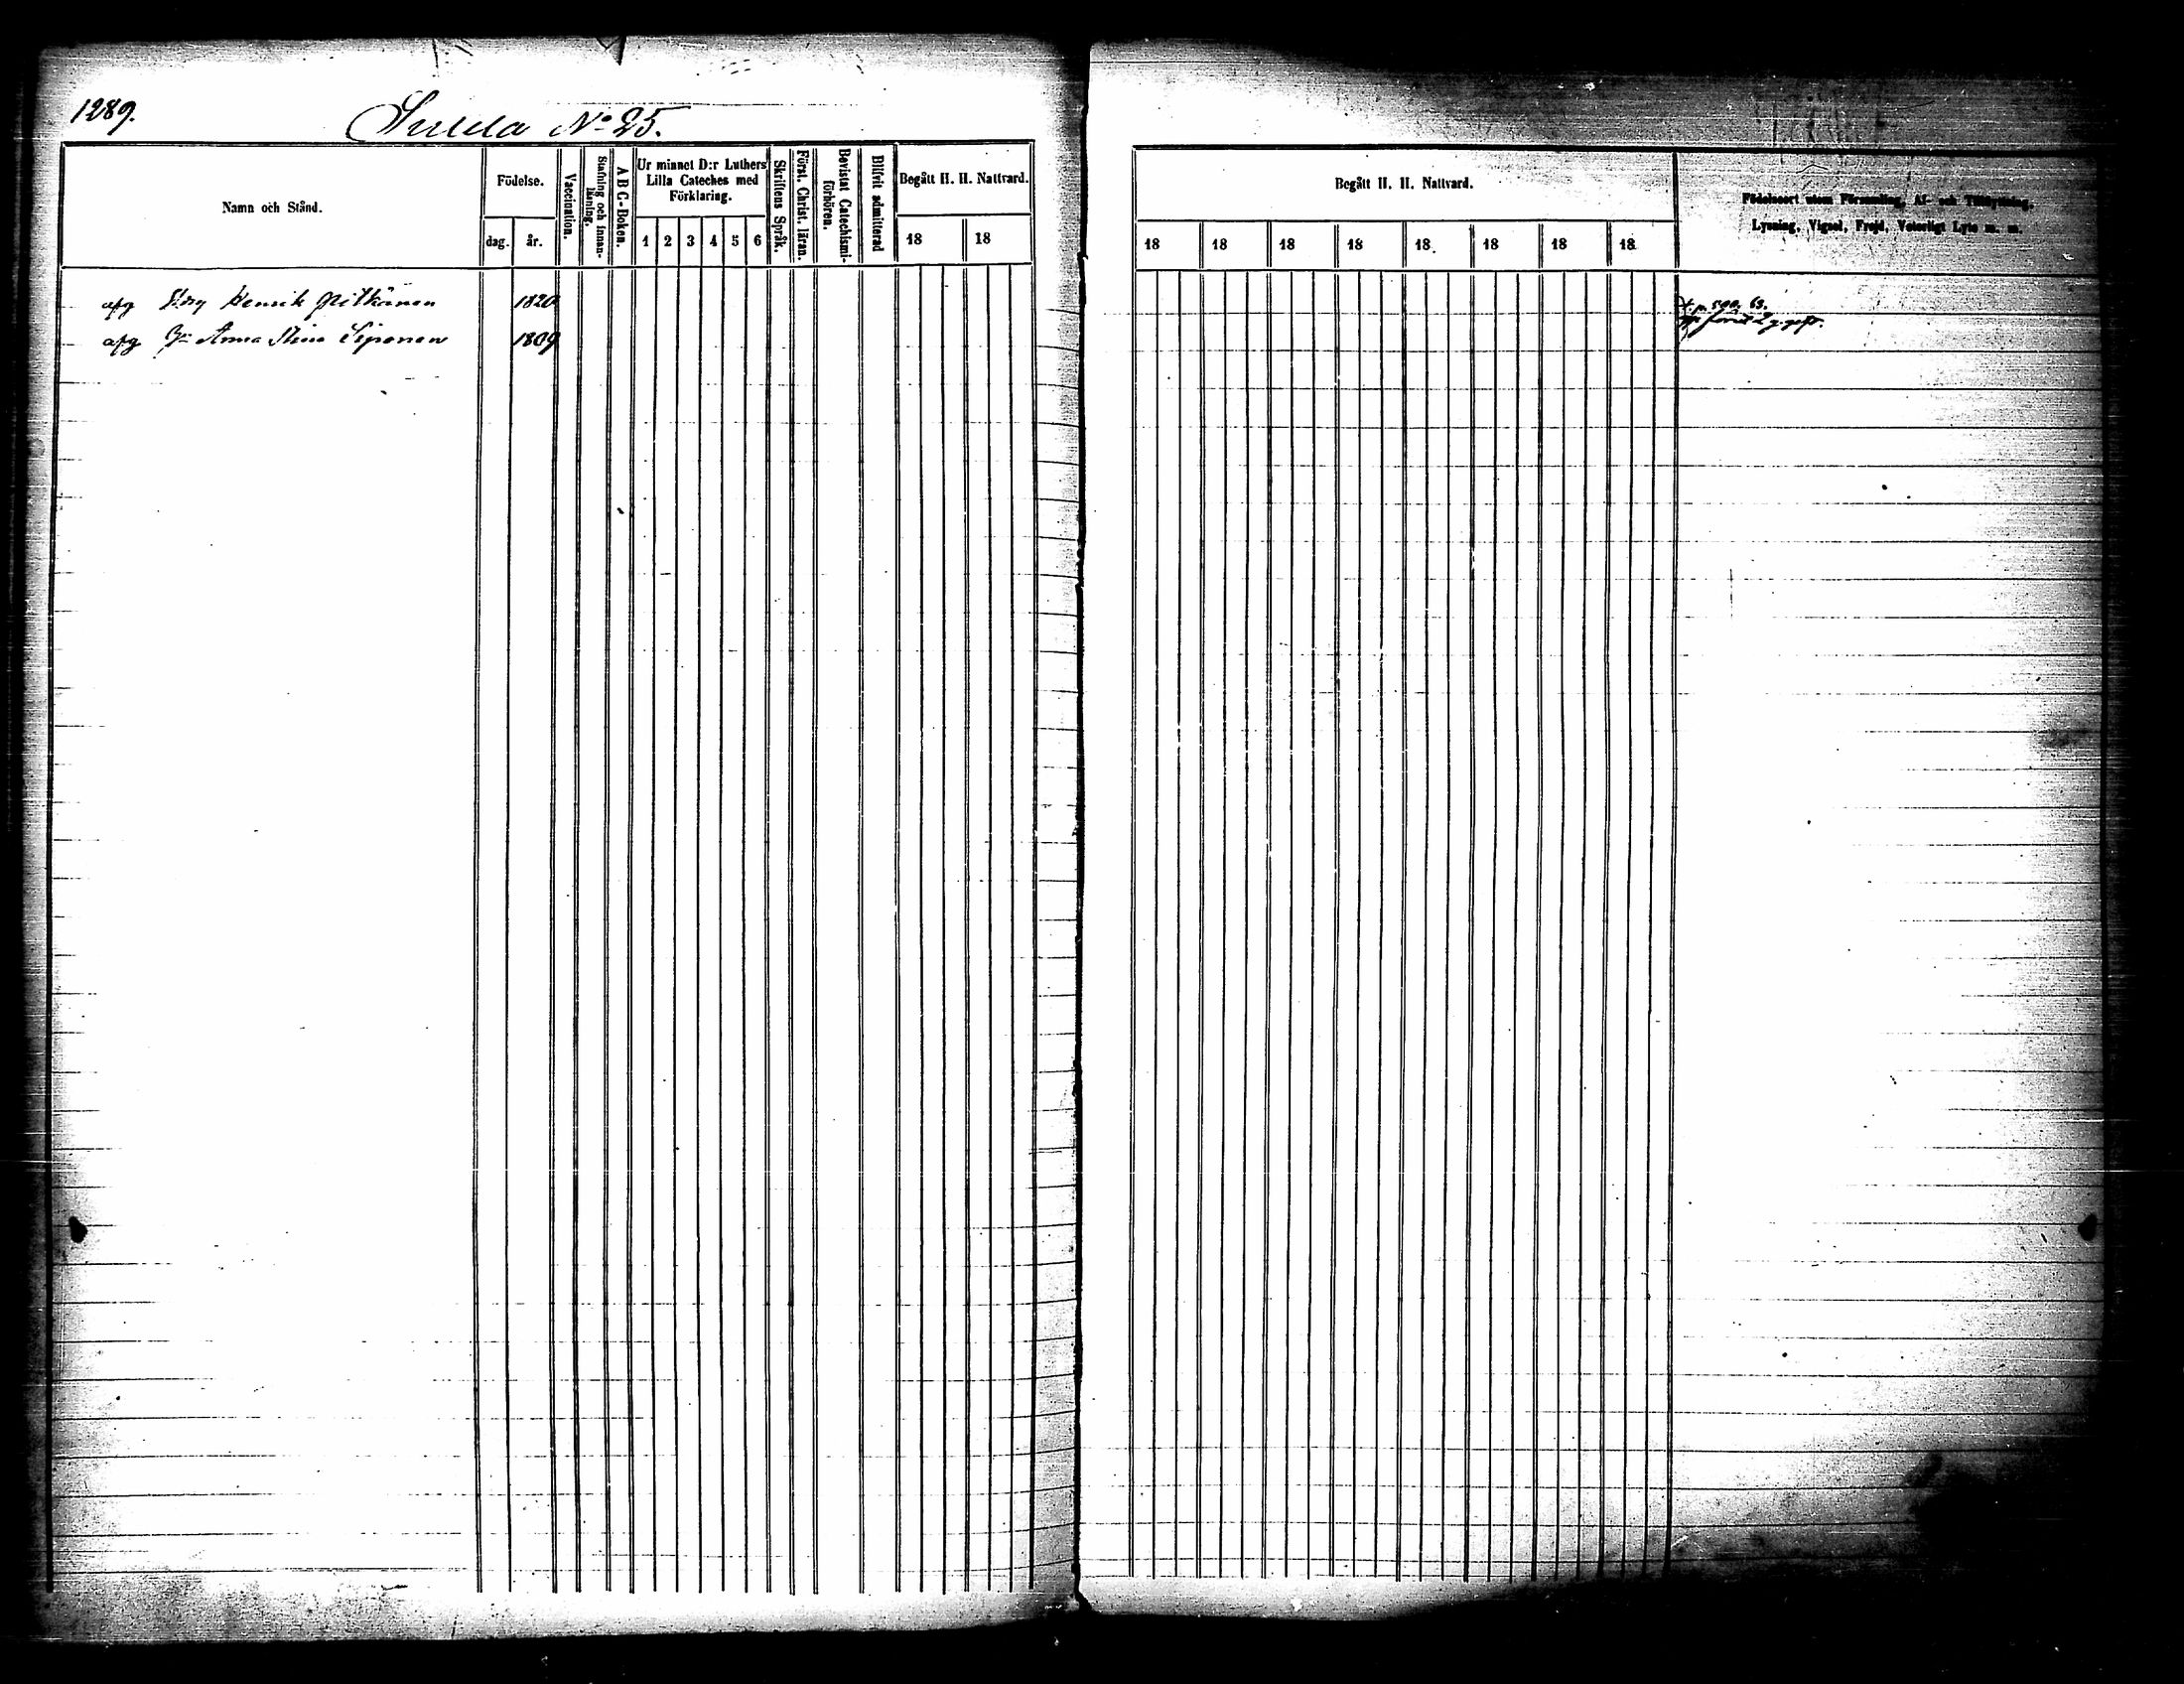 1289.
No 25.
Namn och Stånd.
Födelse.
dag. år.
Vaccination.
Stafning och innan-
läsning.
ABC-Boken.
Ur minnet D:r Luthers
Lilla Cateches med
Förklaring.
1 2 3 4 5 6
Skriftens Språk.
Först. Christ. läran.
Bevistat Catechismi-
förhören.
Blifvit admitterad
Begått H. H. Nattvard.
18 18
Begått H. H. Nattvard.
18 18 18 18 18 18 18 18
Födelseort utom Församling, Af- och Tillflyttning,
Lysning, Vigsel, Frejd, Veterligt Lyte m. m.
afg Henrik Pitkänen 1820
afg Anna Stina Siponen 1809